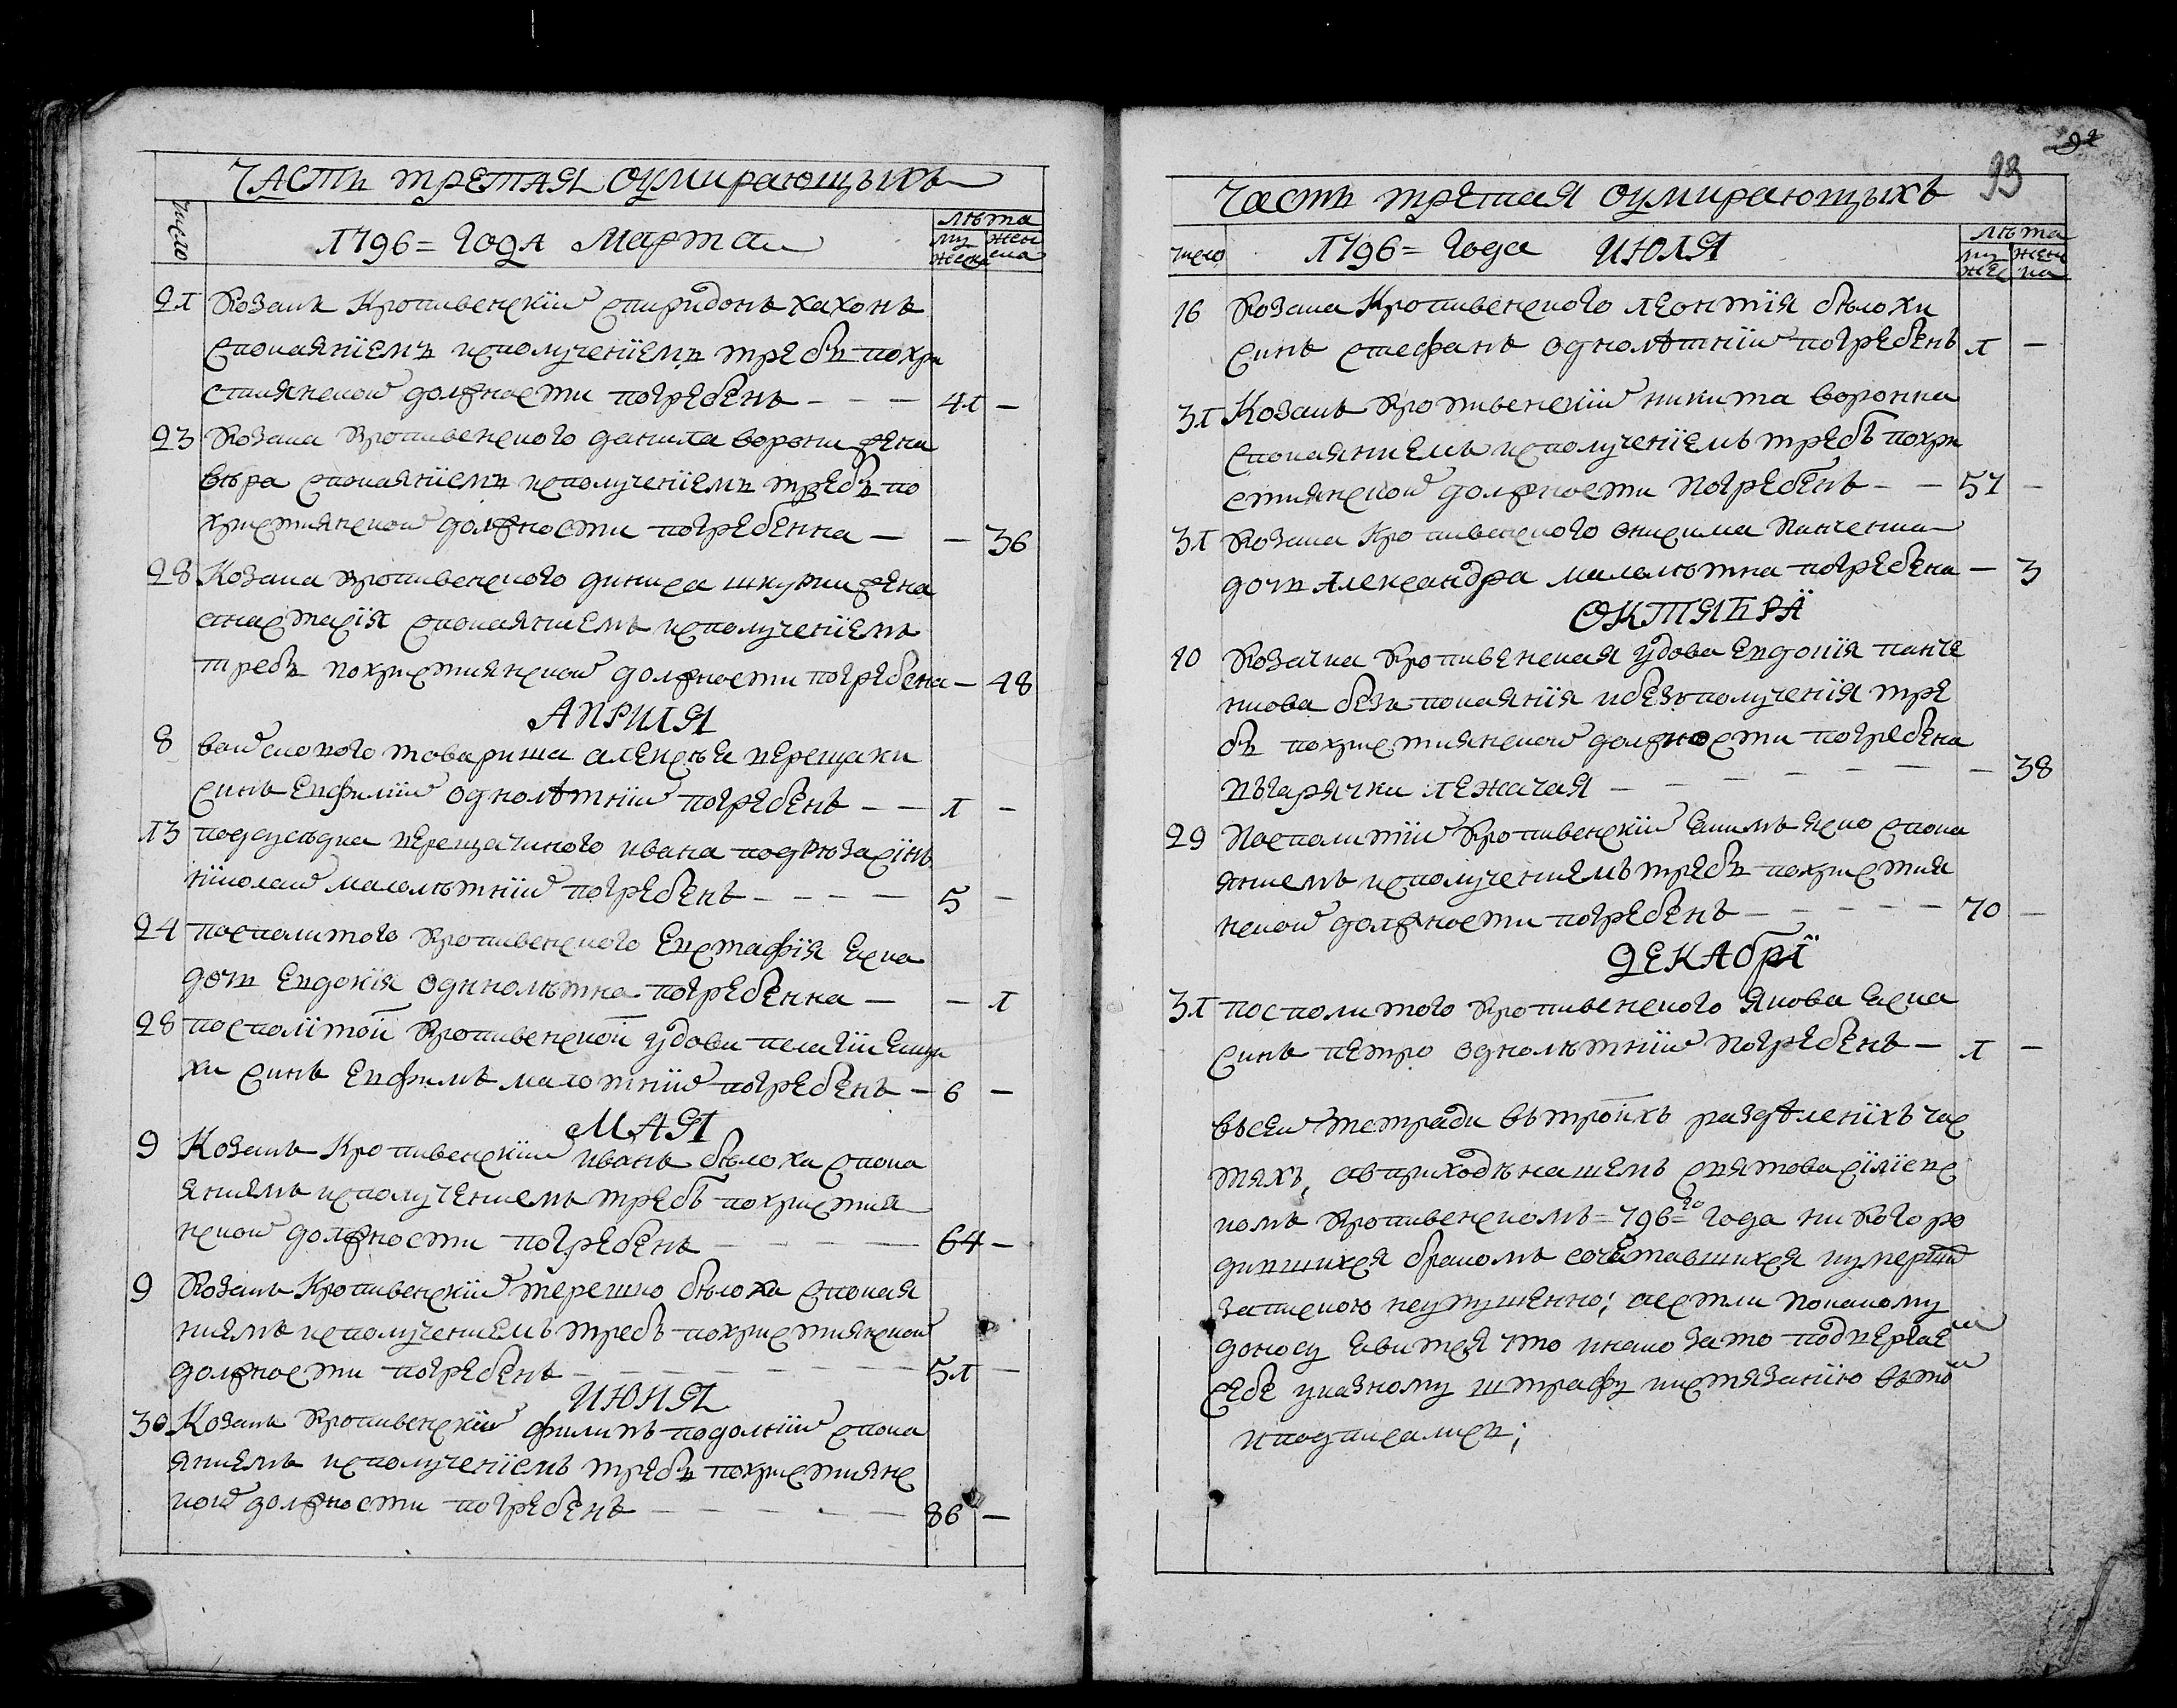 Часть третая оумирающыхъ
число
1796= года Марта
лѣта
му жеска
жен ска
21 Козакъ Кропивенскій спиридонъ хахонъ
споканіемъ исполученіемъ требъ похри
стиянской должности погребенъ - - - 41 -
23 Козака Кропивенского данила ворони жена
вѣра спокаяніемъ исполученіемъ требъ по
християнской должности погребенна - - 36
28 Козака Кропивенского дениса шкурки жена
анастасія спокаянiемъ исполученіемъ
требъ похристиянской должности погребена - 48
Априля
8 войскового товариша алексѣя верещаки
синъ Евфимій однолѣтній погребенъ - - 1 -
13 подсусѣдка верещачиного ивана подрѣза сінъ
ніколай малолѣтній погребенъ - - - - 5 -
24 посполитого Кропивенского Евстафія Еска
дочъ Евдокія однолѣтна погребенна - - 1
28 посполітой Кропивенской удови пелагіи Ешчи
хи синъ Евфимъ малолѣтній погребенъ - 6 -
Мая
9 Козакъ Кропивенскій иванъ бѣлоха спока
яниемъ исполучениемъ требъ похристия
нской должности погребенъ - - - - 64 -
9 Козакъ Кропивенскій терешко бѣлоха спокая
ниемъ исполучениемъ требъ похристиянской
должности погребенъ - - - - - - 51 -
июня
30 Козакъ Кропивенскій филипъ подолній спока
яниемъ исполученіемъ требъ похристиянс
кой должности погребенъ - - - - - 86 -
92
93
Часть третая оумирающыхъ
число
1796= года июля
лѣта
му жес
жен ка
16 Козака Кропивенского леонтія бѣлохи
синъ стефанъ однолѣтній погребенъ 1 -
31 Козакъ Кропивенскій никита воронка
спокаяниемъ исполученіемъ требъ похри
стиянской должности погребенъ - - 57 -
31 Козака Кропивенского онисима Панченка
дочъ Александра малолѣтна погребена - 3
октября
10 Козачка Кропивенская удова Евдокія панче
нкова безъ покаянія ибезъполученія тре
бъ похристиянской должности погребена
въгарячки лежачая - - - - - - - - 38
29 Посполитій Кропивенскій Екимъ яско спока
яниемъ исполучениемъ требъ похристия
нской должности погребенъ - - - - - 70 -
декабрі
31 посполитого Кропивенского Якова Еска
синъ петро однолѣтній погребенъ - 1 -
въсей тетради въ троихъ раздѣленіхъ час
тяхъ, авприходѣ нашемъ святовасіліевс
комъ Кропивенскомъ =796=го года никого ро
дившихся бракомъ сочетавшихся иумерших
запискою неупущенно; аестли покакому
доносу явится что инако зато подвергае
себе указному штрафу иистязанію въто
иподписалися;